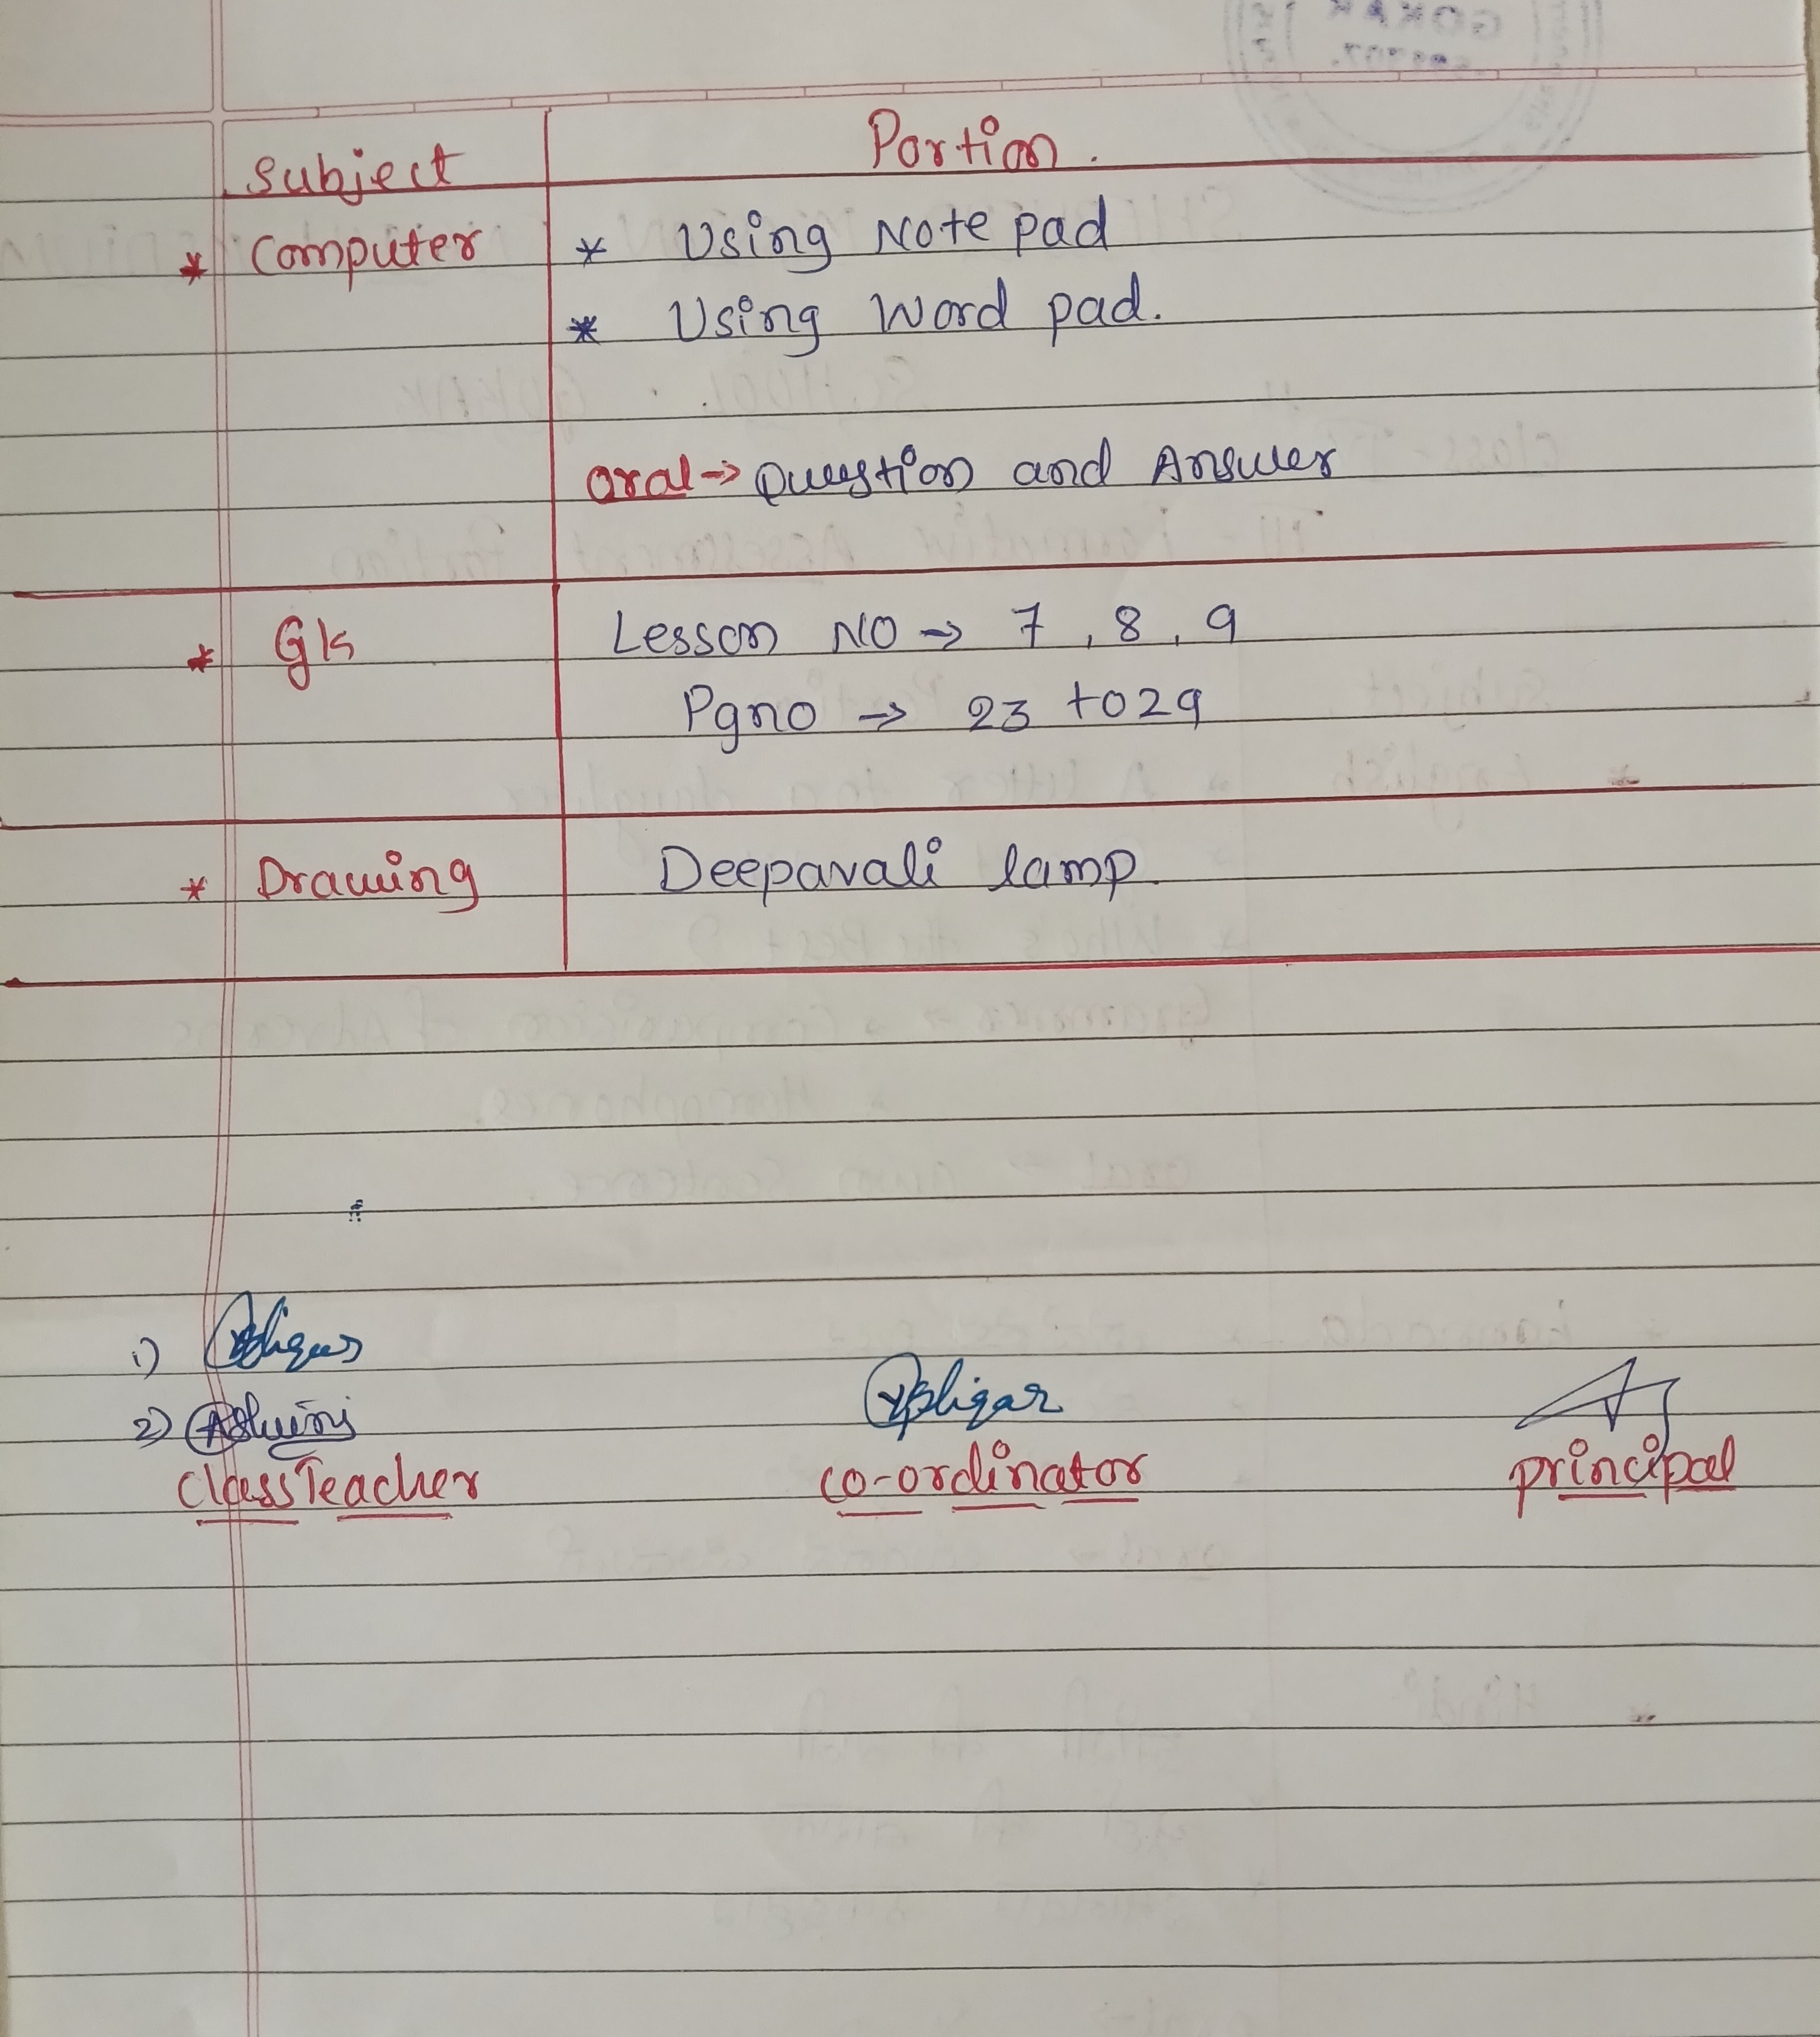 Subject Portion.
* Computer * Using Note pad
* Using Word pad.
oral → Question and Answer
* Gk Lesson NO → 7, 8, 9
Pgno → 23 to 29
* Drawing Deepavali lamp.
1)
2) Ashwini
Class Teacher co-ordinator principal